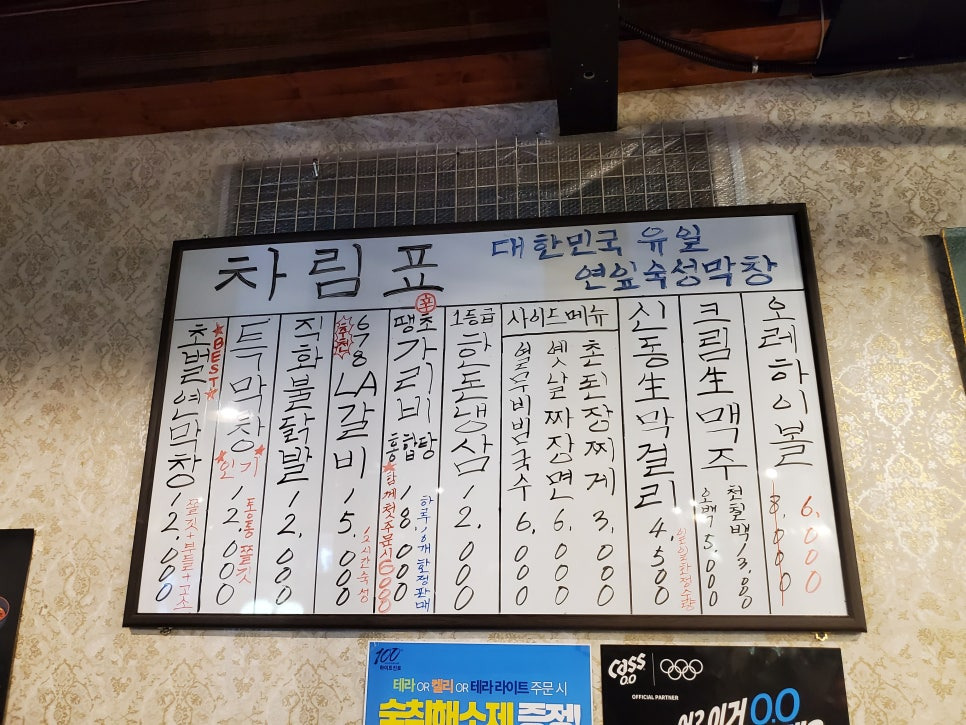 차림표
대한민국 유일
연잎숙성막창
초벌연막창 12,000
★BEST★
쫄깃+부들+고소
특막창 12,000
★인기★
통통 쫄깃
직화불닭발 12,000
678 LA갈비 15,000
추천
12시간숙성
땡초가리비
辛
홍합탕 18,000
★함께 첫주문시 6000
하루 10개 한정판매
1등급 한돈냉삼 12,000
사이드메뉴
열무비빔국수 6,000
옛날짜장면 6,000
촌된장찌게 3,000
신동生막걸리 4,500
크림生맥주
오백 5,000
천칠백 13,000
오레하이볼
8,000
6,000
100
하이트진로
테라 OR 켈리 OR 테라 라이트 주문 시
숙취해소제 증정!
Cass 0.0
OFFICIAL PARTNER
이거 0.0